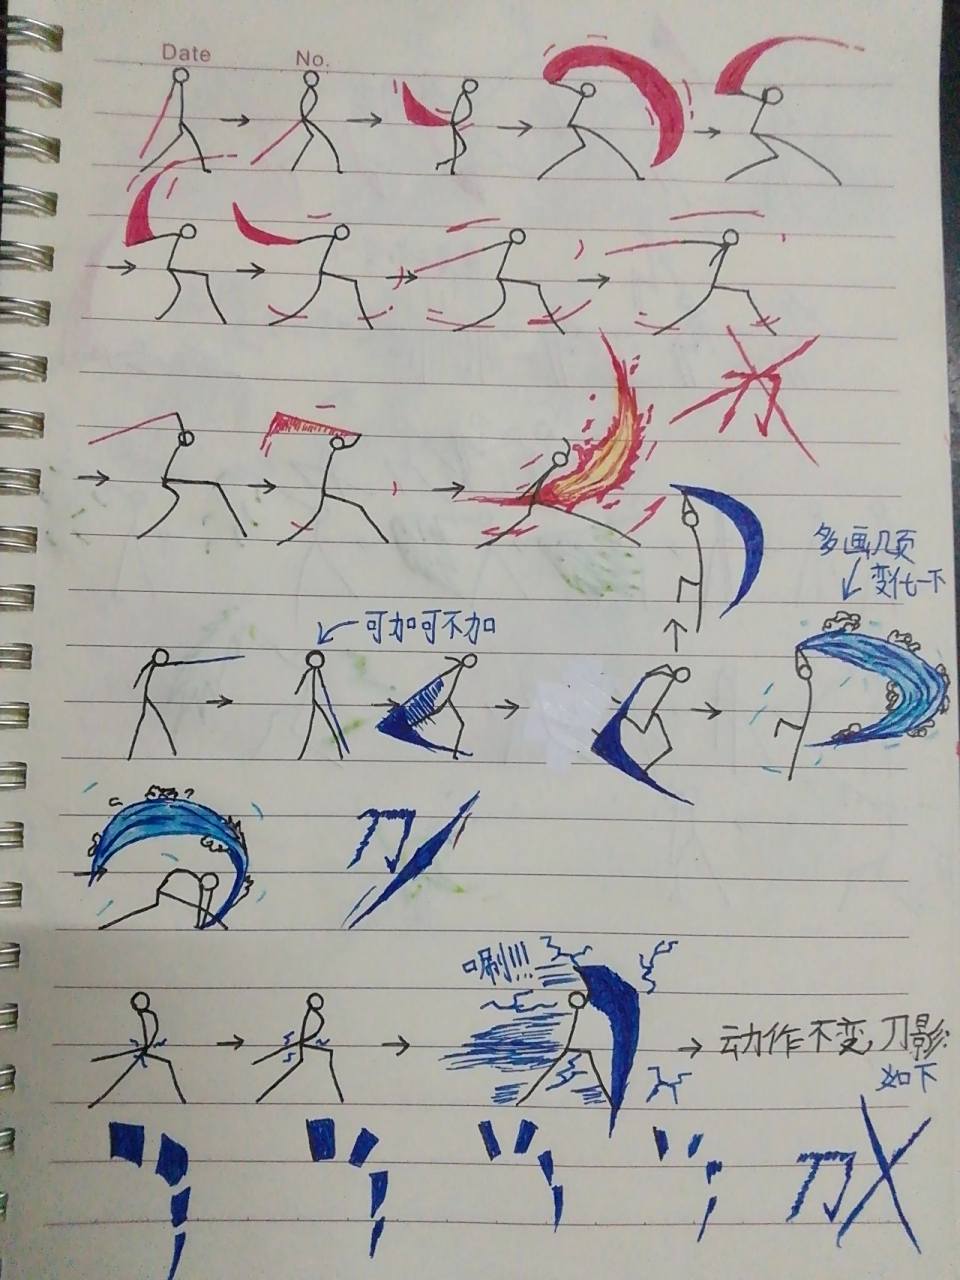 Date No.
刀
多画几页
变化一下
可加可不加
刀
唰!!!
动作不变,刀影:
如下
刀